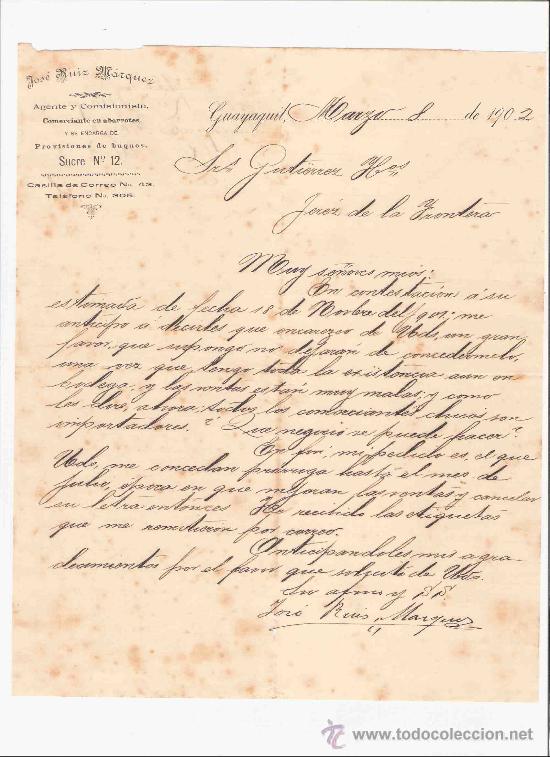 José Ruiz Márquez
Agente y Comisionista
Comerciante en abarrotes
Y SE ENCARGA DE
Provisiones de buques.
Sucre Nº 12.
Casilla de Correo No. 43.
Teléfono No. 306.
Guayaquil, Marzo 8 de 1902
Srs Gutiérrez Hos
Jeréz de la Frontera
Muy señores mios:
En contestación á su
estimada de fecha 18 de Novbre del 901; me
anticipo a decirles que encarezco de Uds, un gran
favor, que supongo no dejarán de concedermelo,
una vez que tengo toda la existencia aun en
bodega, y las ventas están muy malas; y como
les dije, ahora todos los comerciantes chicos son
importadores. ¿Que negocio se puede hacer?
En fin, mi pedido es, el que
Uds, me concedan prórruga hasta el mes de
Julio, época en que mejoran las ventas y cancelar
su letra entonces. He recibido las etiquetas
que me remitieron por correo.
Anticipandoles mis agra
decimientos por el favor que solicito de Uds.
Su afmo y SS
José Ruis Marquez
todocoleccion
www.todocoleccion.net